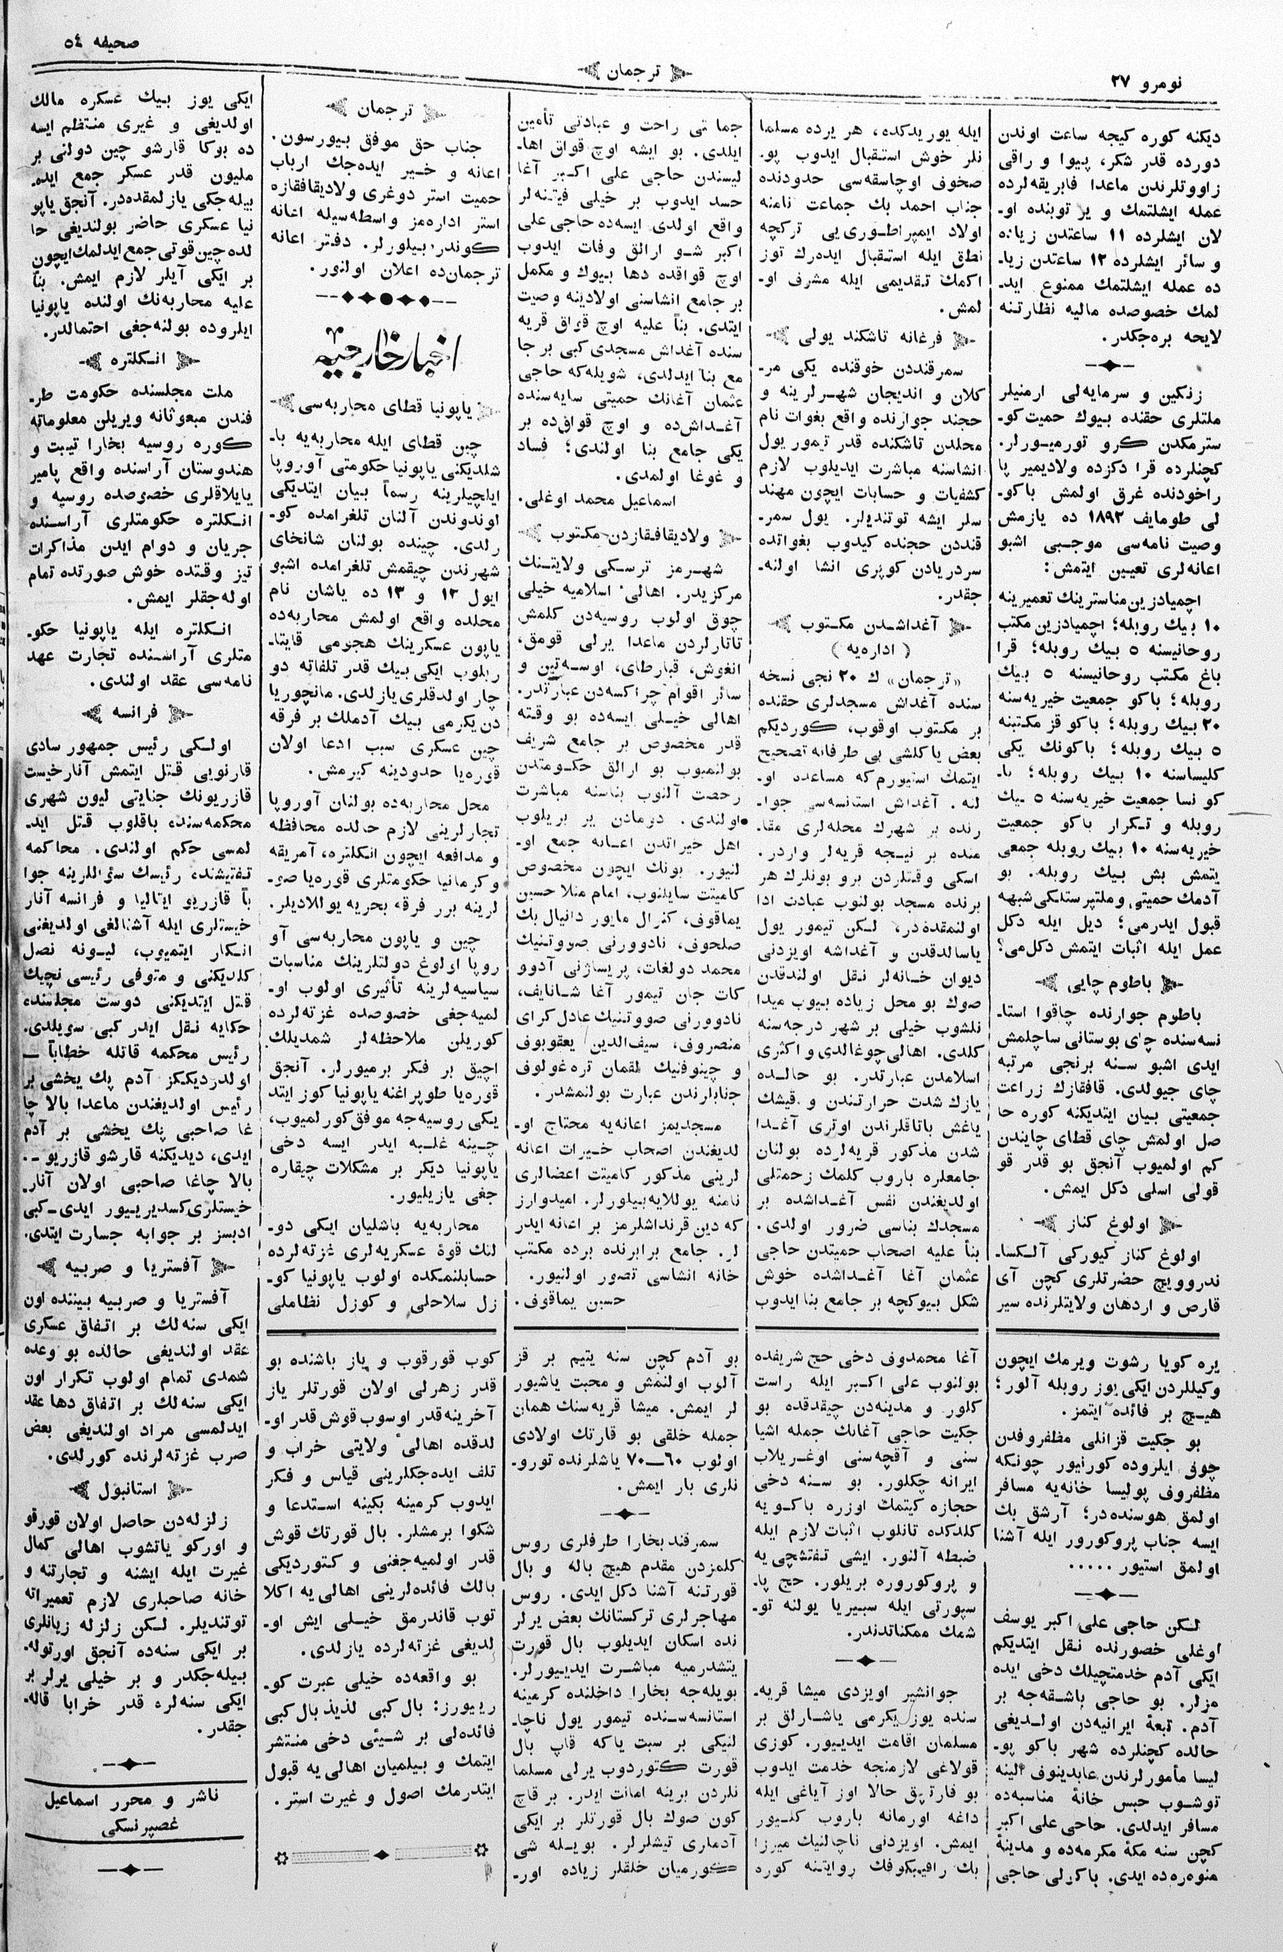 نومرو ٢٧
ترجمان
صحيفه ٥٤
ديكنه كوره كيجه ساعت اوندن
دورده قدر شكر، پيوا و راقى
زاووتلرندن ماعدا فابريقه لرده
عمله ايشلتمك و ير توبنده او-
لان ايشلرده ١١ ساعتدن زياده
و سائر ايشلرده ١٢ ساعتدن زيا-
ده عمله ايشلتمك ممنوع ايد-
لمك خصوصده ماليه نظارتنه
لايحه بره جكدر.
زنكين و سرمايه لى ارمنيلر
ملتلرى حقنده بيوك حميت كو-
سترمكدن كرو تورميورلر.
كچنلرده قرا دكزده ولاديمير پا
راخودنده غرق اولمش باكو-
لى طومايف ١٨٩٢ ده يازمش
وصيت نامه سى موجبى اشبو
اعانه لرى تعيين ايتمش:
اچميادزين مناسترينك تعميرينه
١٠ بيك روبله؛ اچميادزين مكتب
روحانيسنه ٥ بيك روبله؛ قرا
باغ مكتب روحانيسنه ٥ بيك
روبله؛ باكو جمعيت خيريه سنه
٢٠ بيك روبله؛ باكو قز مكتبنه
٥ بيك روبله؛ باكونك يكى
كليساسنه ١٠ بيك روبله؛ با-
كو نسا جمعيت خيريه سنه ٥ بيك
روبله و تكرار باكو جمعيت
خيريه سنه ١٠ بيك روبله جمعى
يتمش بش بيك روبله. بو
آدمك حميتى و ملتپرستلكى شبهه
قبول ايدرمى؛ ديل ايله دكل
عمل ايله اثبات ايتمش دكل مى؟
باطوم چايى
باطوم جوارنده چاقوا استا-
نسه سنده چاى بوستانى ساچلمش
ايدى اشبو سنه برنجى مرتبه
چاى جيولدى. قافقازك زراعت
جمعيتى بيان ايتديكنه كوره حا
صل اولمش چاى قطاى چايندن
كم اولميوب آنجق بو قدر قو
قولى اسلى دكل ايمش.
اولوغ كناز
اولوغ كناز كيوركى آلكسا-
ندروويچ حضرتلرى كچن آى
قارص و اردهان ولايتلرنده سير
ايله يوريدكده، هر يرده مسلما
نلر خوش استقبال ايدوب پو-
صخوف اوچاسقه سى حدودنده
جناب احمد بك جماعت نامنه
اولاد ايمپراطورى يى تركچه
نطق ايله استقبال ايده رك توز
اكمك تقديمى ايله مشرف او-
لمش.
فرغانه تاشكند يولى
سمرقنددن خوقنده يكى مر-
كلان و انديجان شهرلرينه و
حجند جوارنده واقع بغوات نام
محلدن تاشكنده قدر تيمور يول
انشاسنه مباشرت ايديلوب لازم
كشفيات و حسابات ايچون مهند
سلر ايشه توتنديلر. يول سمر-
قنددن حجنده كيدوب بغواتده
سردريادن كوپرى انشا اولنه-
جقدر.
آغداشدن مكتوب
( اداره يه )
«ترجمان» ك ٢٠ نجى نسخه
سنده آغداش مسجدلرى حقنده
بر مكتوب اوقوب، كورديكم
بعض ياكلشى بى طرفانه تصحيح
ايتمك استيورم كه مساعده او-
لنه. آغداش استانسه سى جوا-
رنده بر شهرك محله لرى مقا-
منده بر نيجه قريه لر واردر.
اسكى وقتلردن برو بونلرك هر
برنده مسجد بولنوب عبادت ادا
اولنمقده در، لكن تيمور يول
ياسالدقدن و آغداشه اويزدنى
ديوان خانه لر نقل اولندقدن
صوك بو محل زياده بيوب ميدا
نلشوب خيلى بر شهر درجه سنه
كلدى. اهالى چوغالدى و اكثرى
اسلامدن عبارتدر. بو حالده
يازك شدت حرارتندن و قيشك
ياغش باتاقلرندن اوترى آغدا
شدن مذكور قريه لرده بولنان
جامعلره باروب كلمك زحمتلى
اولديغندن نفس آغداشده بر
مسجدك بناسى ضرور اولدى.
بنأ عليه اصحاب حميتدن حاجى
عثمان آغا آغداشده خوش
شكل بيوكچه بر جامع بنا ايدوب
جماعتى راحت و عبادتى تأمين
ايلدى. بو ايشه اوچ قواق اها-
ليسندن حاجى على اكبر آغا
حسد ايدوب بر خيلى فيتنه لر
واقع اولدى ايسه ده حاجى على
اكبر شو ارالق وفات ايدوب
اوچ قواقده دها بيوك و مكمل
بر جامع انشاسنى اولادينه وصيت
ايتدى. بنأ عليه اوچ قواق قريه
سنده آغداش مسجدى كبى بر جا
مع بنا ايدلدى، شويله كه حاجى
عثمان آغانك حميتى سايه سنده
آغداش ده و اوچ قواق ده بر
يكى جامع بنا اولندى؛ فساد
و غوغا اولمدى.
اسماعيل محمد اوغلى.
ولاديقافقازدن مكتوب
شهرمز ترسكى ولايتنك
مركزيدر. اهالى اسلاميه خيلى
چوق اولوب روسيه دن كلمش
تاتارلردن ماعدا يرلى قومق،
انغوش، قبارطاى، اوسه تين و
سائر اقوام چراكسه دن عبارتدر.
اهالى خيلى ايسه ده بو وقته
قدر مخصوص بر جامع شريف
بولنميوب بو ارالق حكومتدن
رخصت آلنوب بناسنه مباشرت
اولندى. دومادن ير بريلوب
اهل خيراتدن اعانه جمع او-
لنيور. بونك ايچون مخصوص
كاميتت سايلنوب، امام منلا حسين
يماقوف، كنرال مايور دانيال بك
صلحوف، نادوورنى صووتنيك
محمد دولغات، پريساژنى آدوو
كات جان تيمور آغا شانايف،
نادوورنى صووتنيك عادل كراى
منصروف، سيف الدين يعقوبوف
و چينوفنيك لقمان تره غولوف
جنابلرندن عبارت بولنمشدر.
مسجديمز اعانه يه محتاج او-
لديغندن اصحاب خيرات اعانه
لرينى مذكور كاميتت اعضالرى
نامنه يوللايه بيلورلر. اميدوارز
كه دين قرنداشلرمز بر اعانه ايدر
لر. جامع برابرنده برده مكتب
خانه انشاسى تصور اولنيور.
حسين يماقوف.
ترجمان
جناب حق موفق بيورسون.
اعانه و خير ايده جك ارباب
حميت استر دوغرى ولاديقافقازه
استر اداره مز واسطه سيله اعانه
كوندره بيلورلر. دفتر اعانه
ترجمان ده اعلان اولنور.
اخبار خارجيه
ياپونيا قطاى محاربه سى
چين قطاى ايله محاربه يه با-
شلديكنى ياپونيا حكومتى آوروپا
ايلچيلرينه رسمأ بيان ايتديكى
اوندوندن آلنان تلغرامده كو-
رلدى. چينده بولنان شانخاى
شهرندن چيقمش تلغرامده اشبو
ايول ١٢ و ١٣ ده ياشان نام
محلده واقع اولمش محاربه ده
ياپون عسكرينك هجومى قايتا-
ريلوب ايكى بيك قدر تلفاته دو
چار اولدقلرى يازلدى. مانچوريا
دن يكرمى بيك آدملك بر فرقه
چين عسكرى سبب ادعا اولان
قوره يا حدودينه كيرمش.
محل محاربه ده بولنان آوروپا
تجارلرينى لازم حالده محافظه
و مدافعه ايچون انكلتره، آمريقه
و كرمانيا حكومتلرى قوره يا صو-
لرينه برر فرقهٔ بحريه يوللاديلر.
چين و ياپون محاربه سى آو
روپا اولوغ دولتلرينك مناسبات
سياسيه لرينه تأثيرى اولوب او-
لميه جغى خصوصده غزته لرده
كوريلن ملاحظه لر شمديلك
اچيق بر فكر برميورلر. آنجق
قوره يا طوپراغنه ياپونيا كوز ايتد
يكى روسيه جه موفق كورلميوب،
چينه غلبه ايدر ايسه دخى
ياپونيا ديكر بر مشكلات چيقاره
جغى يازيليور.
محاربه يه باشليان ايكى دو-
لتك قوهٔ عسكريه لرى غزته لرده
حسابلنمكده اولوب ياپونيا كو-
زل سلاحلى و كوزل نظاملى
ايكى يوز بيك عسكره مالك
اولديغى و غيرى منتظم ايسه
ده بوكا قارشو چين دولتى بر
مليون قدر عسكر جمع ايده
بيله جكى يازلمقده در. آنجق ياپو
نيا عسكرى حاضر بولنديغى حا
لده چين قوتى جمع ايدلمك ايچون
بر ايكى آيلر لازم ايمش. بنأ
عليه محاربه نك اولنده ياپونيا
ايلروده بولنه جغى احتمالدر.
انكلتره
ملت مجلسنده حكومت طر-
فندن مبعوثانه ويريلن معلوماته
كوره روسيه بخارا تيبت و
هندوستان آراسنده واقع پامير
يايلاقلرى خصوصده روسيه و
انكلتره حكومتلرى آراسنده
جريان و دوام ايدن مذاكرات
تيز وقتده خوش صورتده تمام
اوله جقلر ايمش.
انكلتره ايله ياپونيا حكو-
متلرى آراسنده تجارت عهد
نامه سى عقد اولندى.
فرانسه
اولكى رئيس جمهور سادى
قارنويى قتل ايتمش آنارخيست
قازريونك جنايتى ليون شهرى
محكمه سنده باقلوب قتل ايد-
لمسى حكم اولندى. محاكمه
تفتيشنده رئيسك سئواللرينه جوا
بأ قازريو ايتاليا و فرانسه آنار
خيستلرى ايله آشنالغى اولديغنى
انكار ايتميوب، ليونه نصل
كلديكنى و متوفى رئيسى نچيك
قتل ايتديكنى دوست مجلسنده
حكايه نقل ايدر كبى سويلدى.
رئيس محكمه قاتله خطابأ —
اولدرديككز آدم پك يخشى بر
رئيس اولديغندن ماعدا بالا چا
غا صاحبى پك يخشى بر آدم
ايدى، ديديكنه قارشو قازريو-
بالا چاغا صاحبى اولان آنار-
خيستلرى كسديريور ايدى-كبى
ادبسز بر جوابه جسارت ايتدى.
آفستريا و صربيه
آفستريا و صربيه بيننده اون
ايكى سنه لك بر اتفاق عسكرى
عقد اولنديغى حالده بو وعده
شمدى تمام اولوب تكرار اون
ايكى سنه لك بر اتفاق دها عقد
ايدلمسى مراد اولنديغى بعض
صرب غزته لرنده كورلدى.
استانبول
زلزله دن حاصل اولان قورقو
و اوركو ياتشوب اهالى كمال
غيرت ايله ايشنه و تجارتنه و
خانه صاحبلرى لازم تعميراته
توتنديلر. لكن زلزله زيانلرى
بر ايكى سنه ده آنجق اورتوله-
بيله جكدر و بر خيلى يرلر بر
ايكى سنه لره قدر خرابا قاله-
جقدر.
ناشر و محرر اسماعيل
غصپرنسكى
يره كويا رشوت ويرمك ايچون
وكيللردن ايكى يوز روبله آلور؛
هيچ بر فائده ايتمز.
بو جكيت قزانلى مظفروفدن
چوق ايلروده كورنيور چونكه
مظفروف پوليسا خانه يه مسافر
اولمق هوسنده در؛ آرشق بك
ايسه جناب پروكورور ايله آشنا
اولمق استيور .....
لكن حاجى على اكبر يوسف
اوغلى خصورنده نقل ايتديكم
ايكى آدم خدمتچيلك دخى ايده
مزلر. بو حاجى باشقه جه بر
آدم. تبعهٔ ايرانيه دن اولديغى
حالده كچنلرده شهر باكو پو-
ليسا مأمورلرندن عابدينوف الينه
توشوب حبس خانهٔ مناسبه ده
مسافر ايدلدى. حاجى على اكبر
كچن سنه مكهٔ مكرمه ده و مدينهٔ
منوره ده ايدى. باكولى حاجى
آغا محمدوف دخى حج شريفده
بولنوب على اكبر ايله راست
كلور و مدينه دن چيقدقده بو
جكيت حاجى آغانك جمله اشيا
سنى و آقچه سنى اوغريلاب
ايرانه چكلور. بو سنه دخى
حجازه كيتمك اوزره باكويه
كلدكده تانلوب اثبات لازم ايله
ضبطه آلنور. ايشى تفتشچى يه
و پروكوروره بريلور. حج پا-
سپورتى ايله سبيريا يولنه تو-
شمك ممكناتدندر.
جوانشير اويزدى ميشا قريه-
سنده يوز يكرمى ياشارلق بر
مسلمان اقامت ايديور. كوزى
قولاغى لازمنجه خدمت ايدوب
بو قارتپق حالا اوز آياغى ايله
داغه اورمانه باروب كليور
ايمش. اويزدنى ناچالنيك ميرزا
بك رافيبكوفك روايتنه كوره
بو آدم كچن سنه يتيم بر قز
آلوب اولنمش و محبت ياشيور
لر ايمش. ميشا قريه سنك همان
جمله خلقى بو قارتك اولادى
اولوب ٦٠—٧٠ ياشلرنده تورو-
نلرى بار ايمش.
سمرقند بخارا طرفلرى روس
كلمزدن مقدم هيچ باله و بال
قورتنه آشنا دكل ايدى. روس
مهاجرلرى تركستانك بعض يرلر
نده اسكان ايديلوب بال قورت
يتشدرميه مباشرت ايديورلر.
بويله جه بخارا داخلنده كرمينه
استانسه سنده تيمور يول ناچا-
لنيكى بر سبت ياكه قاپ بال
قورت كتوردوب يرلى مسلما
نلردن برينه امانت ايدر. بر قاچ
كون صوك بال قورتلر بر ايكى
آدمارى تيشلرلر. بويله شى
كورميان خلقلر زياده اور-
كوب قورقوب و پاز باشنده بو
قدر زهرلى اولان قورتلر ياز
آخرينه قدر اوسوب قوش قدر او-
لدقده اهالى ولايتى خراب و
تلف ايده جكلرينى قياس و فكر
ايدوب كرمينه بكينه استدعا و
شكوا برمشلر. بال قورتك قوش
قدر اولميه جغنى و كتورديكى
بالك فائده لرينى اهالى يه اكلا
توب قاندرمق خيلى ايش او-
لديغى غزته لرده يازلدى.
بو واقعه ده خيلى عبرت كو-
رييورز: بال كبى لذيذ بال كبى
فائده لى بر شيئى دخى منتشر
ايتمك و بيلميان اهالى يه قبول
ايتدرمك اصول و غيرت استر.